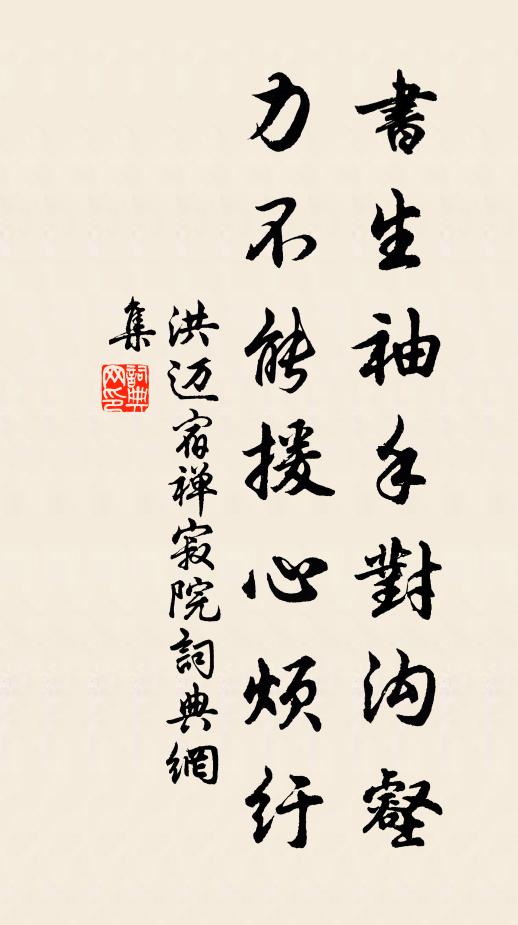 書生袖手對沟壑
力不能援心烦纡
洪迈宿禅寂院詞典網
集
詞典网印